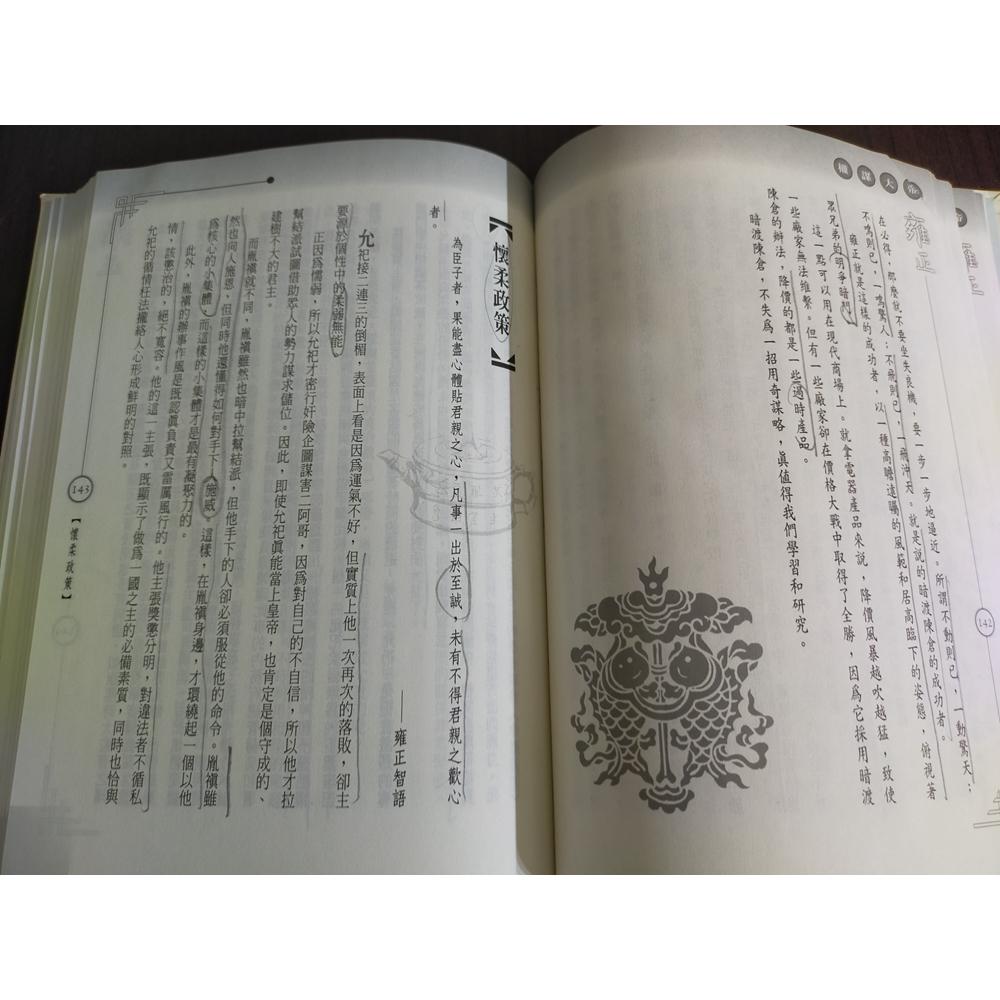 權謀大帝
雍正
在必得，那麼就不要坐失良機，要一步一步地逼近。所謂不動則已，一動驚天；
不鳴則已，一鳴驚人；不飛則已，一飛沖天。就是說的暗渡陳倉的成功者。
雍正就是這樣的成功者，以一種高瞻遠矚的風範和居高臨下的姿態，俯視著
眾兄弟的明爭暗鬥。
這一點可以用在現代商場上。就拿電器產品來說，降價風暴越吹越猛，致使
一些廠家無法維繫。但有一些廠家卻在價格大戰中取得了全勝，因為它採用暗渡
陳倉的辦法，降價的都是一些過時產品。
暗渡陳倉，不失為一招用奇謀略，真值得我們學習和研究。
142
【懷柔政策】
為臣子者，果能盡心體貼君親之心，凡事一出於至誠，未有不得君親之歡心
者。
——雍正智語
允祀接二連三的倒楣，表面上看是因為運氣不好，但實質上他一次再次的落敗，卻主
要源於個性中的柔弱無能。
正因為懦弱，所以允祀才密行奸險企圖謀害二阿哥，因為對自己的不自信，所以他才拉
幫結派試圖借助眾人的勢力謀求儲位。因此，即使允祀真能當上皇帝，也肯定是個守成的、
建樹不大的君主。
而胤禛就不同，胤禛雖然也暗中拉幫結派，但他手下的人卻必須服從他的命令。胤禛雖
然也向人施恩，但同時他還懂得如何對手下人施威，這樣，在胤禛身邊，才環繞起一個以他
為核心的小集體，而這樣的小集體才是最有凝聚力的。
此外，胤禛的辦事作風是既認真負責又雷厲風行的。他主張獎懲分明，對違法者不循私
情，該懲治的，絕不寬容。他的這一主張，既顯示了做為一國之主的必備素質，同時也恰與
允祀的循情枉法攏絡人心形成鮮明的對照。
143
【懷柔政策】